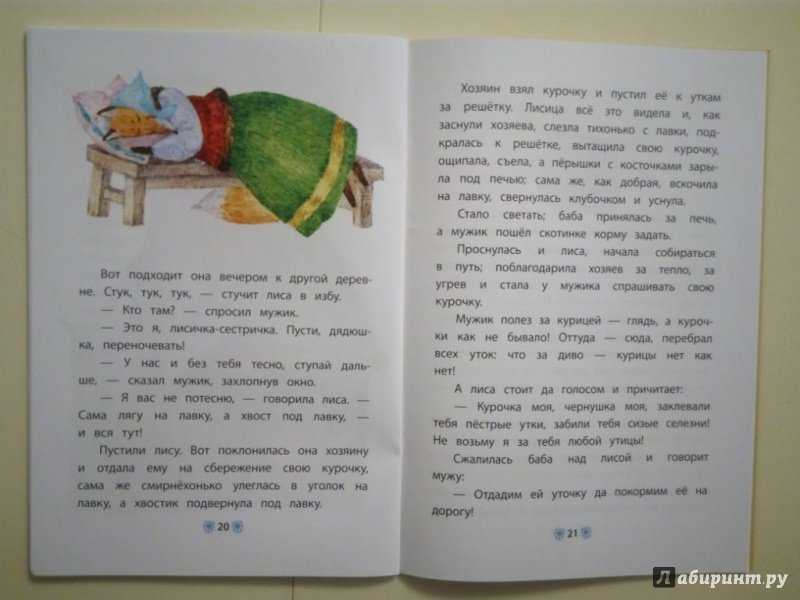 Вот подходит она вечером к другой дерев-
не. Стук, тук, тук, — стучит лиса в избу.
— Кто там? — спросил мужик.
— Это я, лисичка-сестричка. Пусти, дядюш-
ка, переночевать!
— У нас и без тебя тесно, ступай даль-
ше, — сказал мужик, захлопнув окно.
— Я вас не потесню, — говорила лиса. —
Сама лягу на лавку, а хвост под лавку, —
и вся тут!
Пустили лису. Вот поклонилась она хозяину
и отдала ему на сбережение свою курочку,
сама же смирнёхонько улеглась в уголок на
лавку, а хвостик подвернула под лавку.
20
Хозяин взял курочку и пустил её к уткам
за решётку. Лисица всё это видела и, как
заснули хозяева, слезла тихонько с лавки, под-
кралась к решётке, вытащила свою курочку,
ощипала, съела, а пёрышки с косточками зары-
ла под печью; сама же, как добрая, вскочила
на лавку, свернулась клубочком и уснула.
Стало светать; баба принялась за печь,
а мужик пошёл скотинке корму задать.
Проснулась и лиса, начала собираться
в путь; поблагодарила хозяев за тепло, за
угрев и стала у мужика спрашивать свою
курочку.
Мужик полез за курицей — глядь, а куроч-
ки как не бывало! Оттуда — сюда, перебрал
всех уток: что за диво — курицы нет как
нет!
А лиса стоит да голосом и причитает:
— Курочка моя, чернушка моя, заклевали
тебя пёстрые утки, забили тебя сизые селезни!
Не возьму я за тебя любой утицы!
Сжалилась баба над лисой и говорит
мужу:
— Отдадим ей уточку да покормим её на
дорогу!
21
Лабиринт.ру